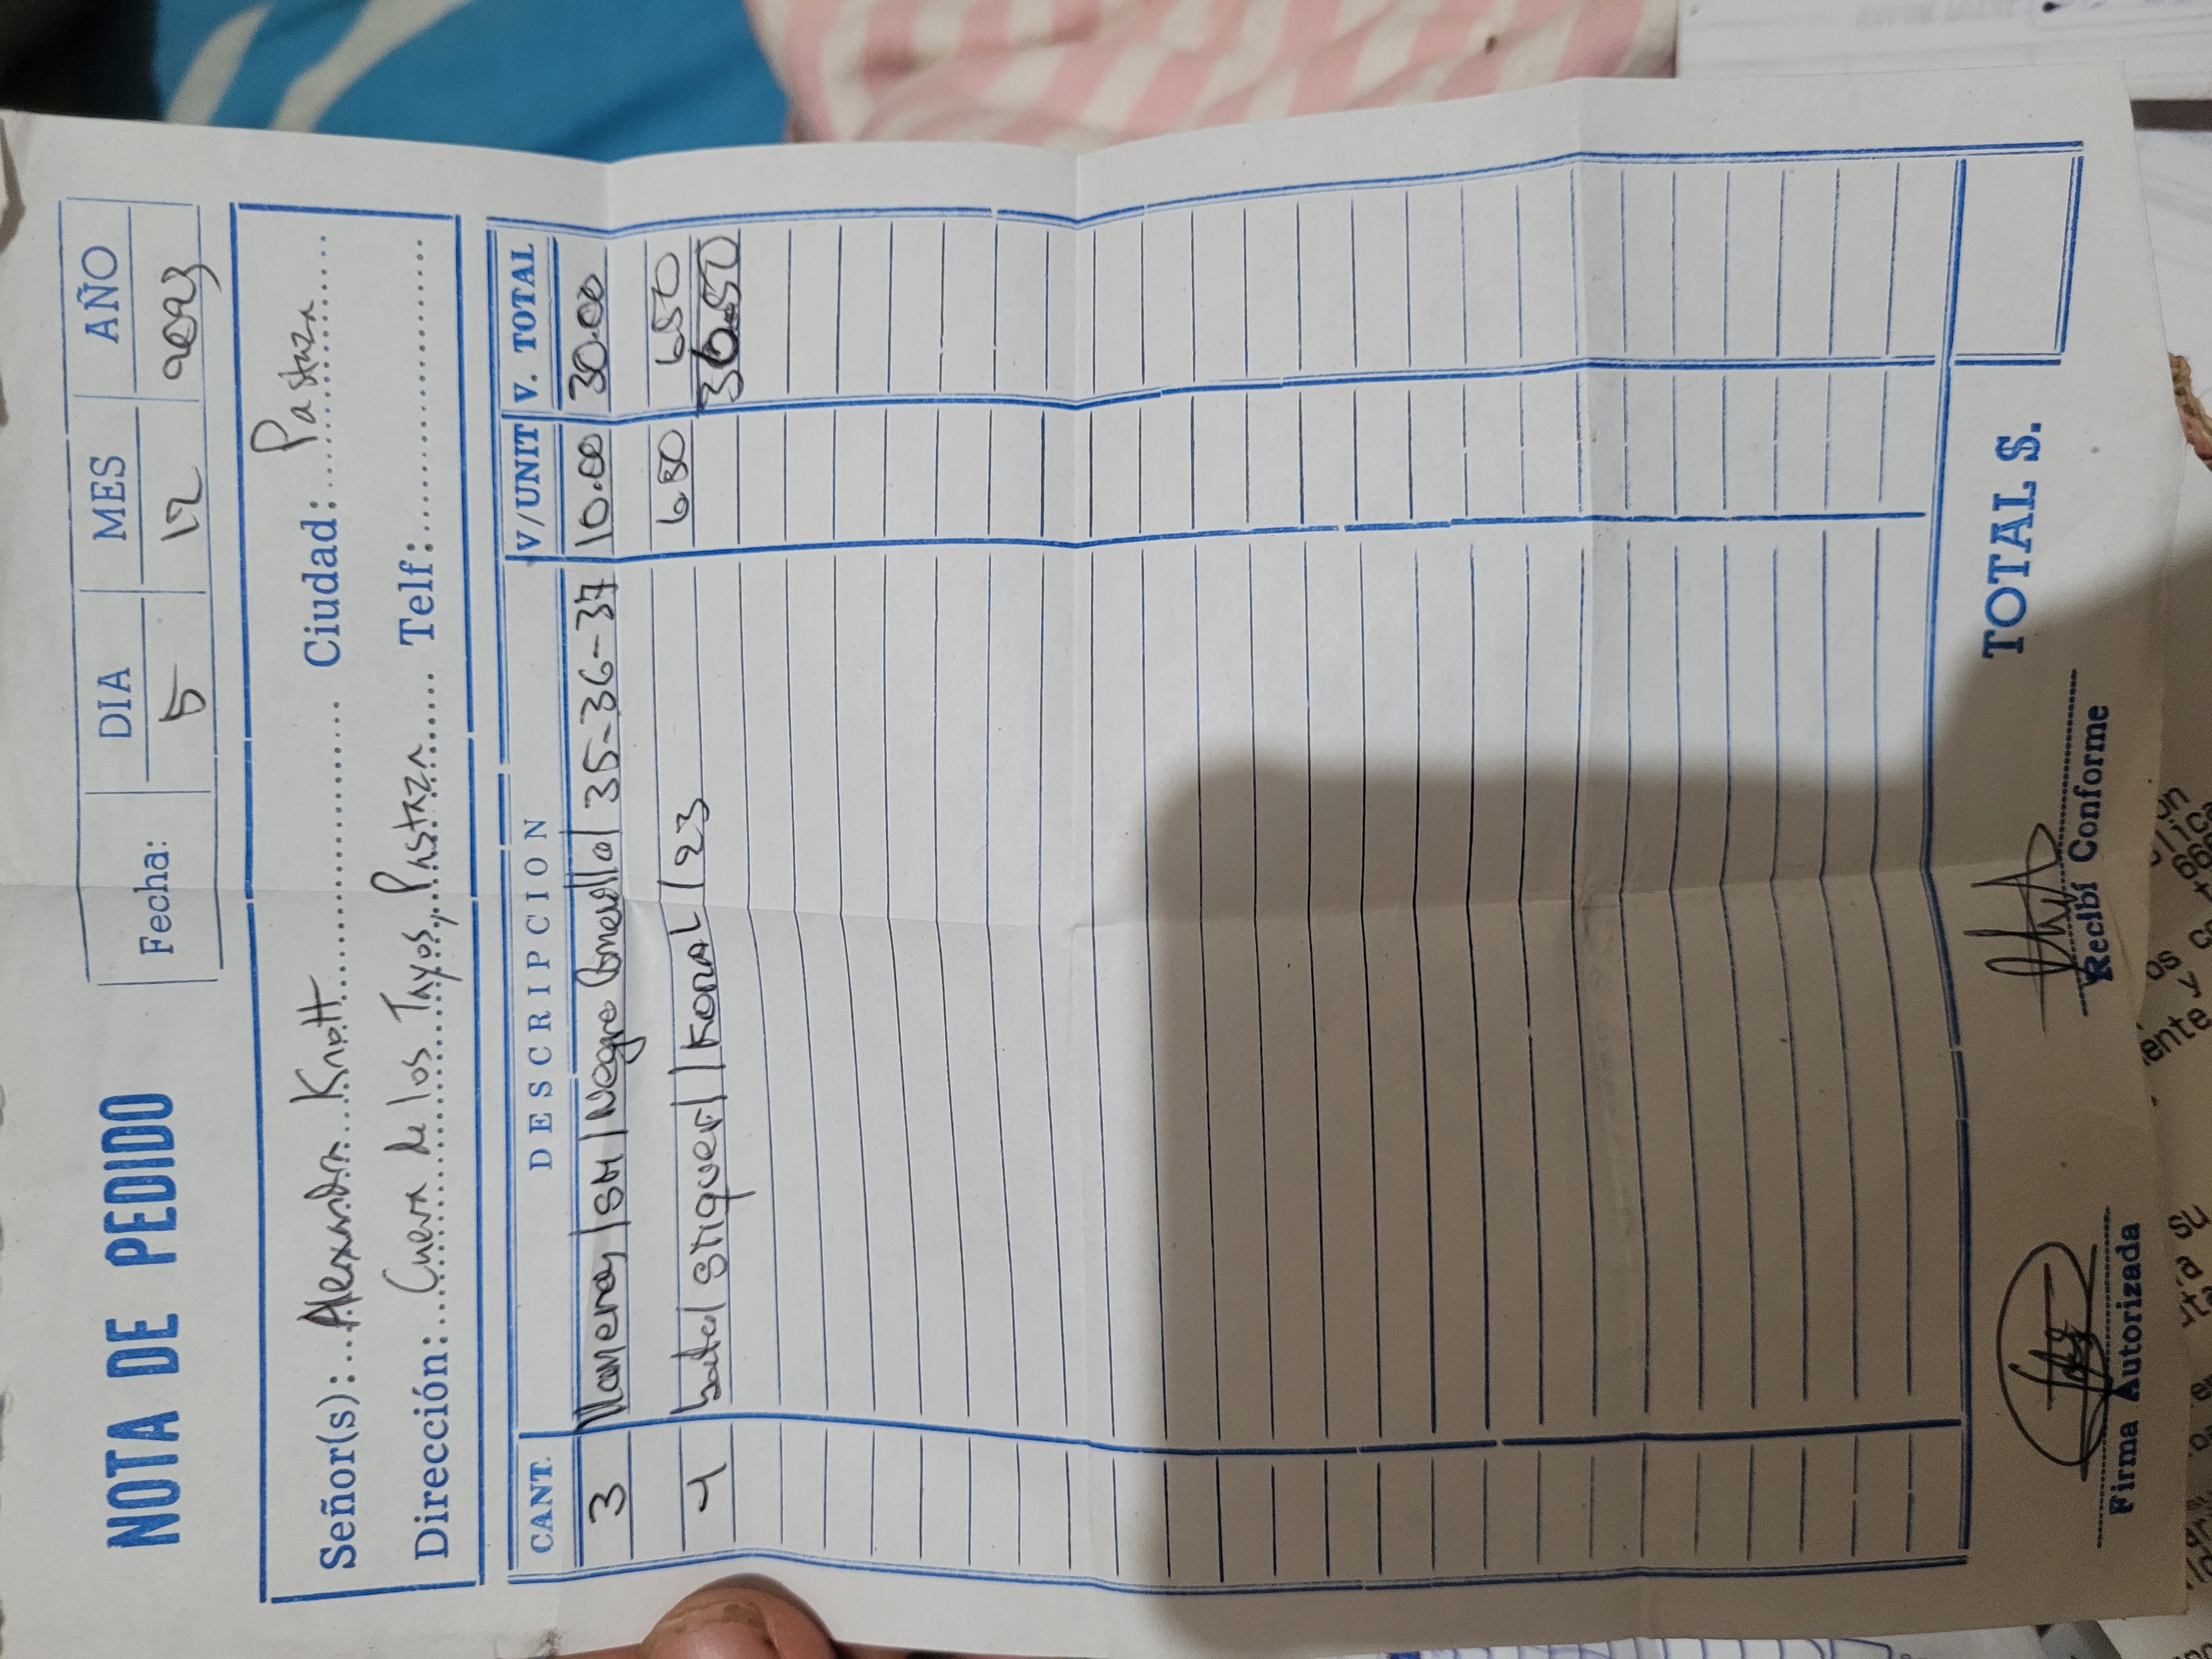 NOTA DE PEDIDO
Fecha: DIA MES AÑO
5 12 2023
Señor(s): Alexandra Knott Ciudad: Pastaza
Dirección: Cueva de los Tayos, Pastaza Telf:
CANT. DESCRIPCION V/UNIT V. TOTAL
3 | SM | Negro | 35-36-37 10.00 30.00
1 | KORAL | 23 6.50 6.50
36.50
TOTAL S.
Firma Autorizada Recibí Conforme